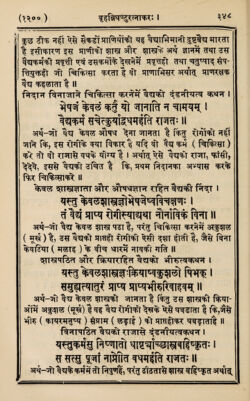 (१२००) बृहन्निघण्टुरत्नाकरः । ३४८
कुछ ठीक नहीं ऐसे सैकड़ों प्राणियोंकी यह वैद्याभिमानी दुष्टवैद्य मारता
है इसीकारण इस प्राणीको शास्त्र और शास्त्रके अर्थ ज्ञानमें तथा उस
वैद्यकर्मकी प्रवृत्ती एवं उसकर्मके देखनेमें प्रवृत्तहो तथा चतुष्पाद संप-
त्तियुक्तही जो चिकित्सा करताहै वह वैद्य प्राणोंका अभिसर अर्थात् रक्षक
वैद्य कहाता है ।
निदान विनाजाने चिकित्सा करनेमें वैद्यको दंडनीयत्व कथन ।
भेषजं केवलं कर्तुं यो जानाति न चामयम् ।
वैद्यकर्म सचेत्कुर्याद्वधमर्हति राजतः ॥
अर्थ-जो वैद्य केवल औषध देना जानता है किंतु रोगोंको नहीं
जाने कि, इस रोगीके क्या विकार है यदि वो वैद्य वैद्यकर्म (चिकित्सा)
करे तो वो राजासे वधके योग्य है । अर्थात् ऐसे वैद्यको राजा, फांसी,
देदेवे, इससे वैद्यको उचित है कि, प्रथम निदानका अभ्यास करके
फिर चिकित्साकरे ॥
केवल शास्त्रज्ञाता और औषधज्ञान रहित वैद्यकी निंदा ।
यस्तु केवलशास्त्रज्ञोभेषजेष्वविचक्षणः ।
तं वैद्यं प्राप्य रोगीस्याद्यथा नौर्नाविकं विना ॥
अर्थ-जो वैद्य केवल शास्त्र पढा है, परंतु चिकित्सा करनेमें अकुशल
( मूर्ख ) है, उस वैद्यको प्राप्तहो रोगीकी ऐसी दशा होती है, जैसे विना
केवटिया ( मलाह ) के बीच धारमें नावकी गति ॥
शास्त्रपठित और क्रियारहित वैद्यको भीरुत्वकथन ।
यस्तु केवलशास्त्रज्ञःक्रियास्वकुशलो भिषक् ।
समुह्यत्यातुरं प्राप्य प्राप्यभीरुरिवाहवम् ॥
अर्थ-जो वैद्य केवल शास्त्रको जानता है किंतु उस शास्त्रकी क्रियामें
अकुशल (मूर्ख) है वो वैद्य रोगीको देखके ऐसे घबडाता है कि, जैसे
भीरु ( कायरमनुष्य ) संग्राम (लड़ाई ) को प्राप्तहोकर घबड़ाताहै ॥
विनापठित वैद्यको राजदंडनीयत्व कथन ।
यस्तुकर्मसु निष्णातो धार्ष्ट्याच्छास्त्रबहिष्कृतः ।
स सत्सु पूजां नाप्नोति वधमर्हति राजतः ॥
अर्थ-जो वैद्य कर्ममें तो निपुणहैं, परंतु ढीठतासे शास्त्र बहिष्कृत अर्थात्